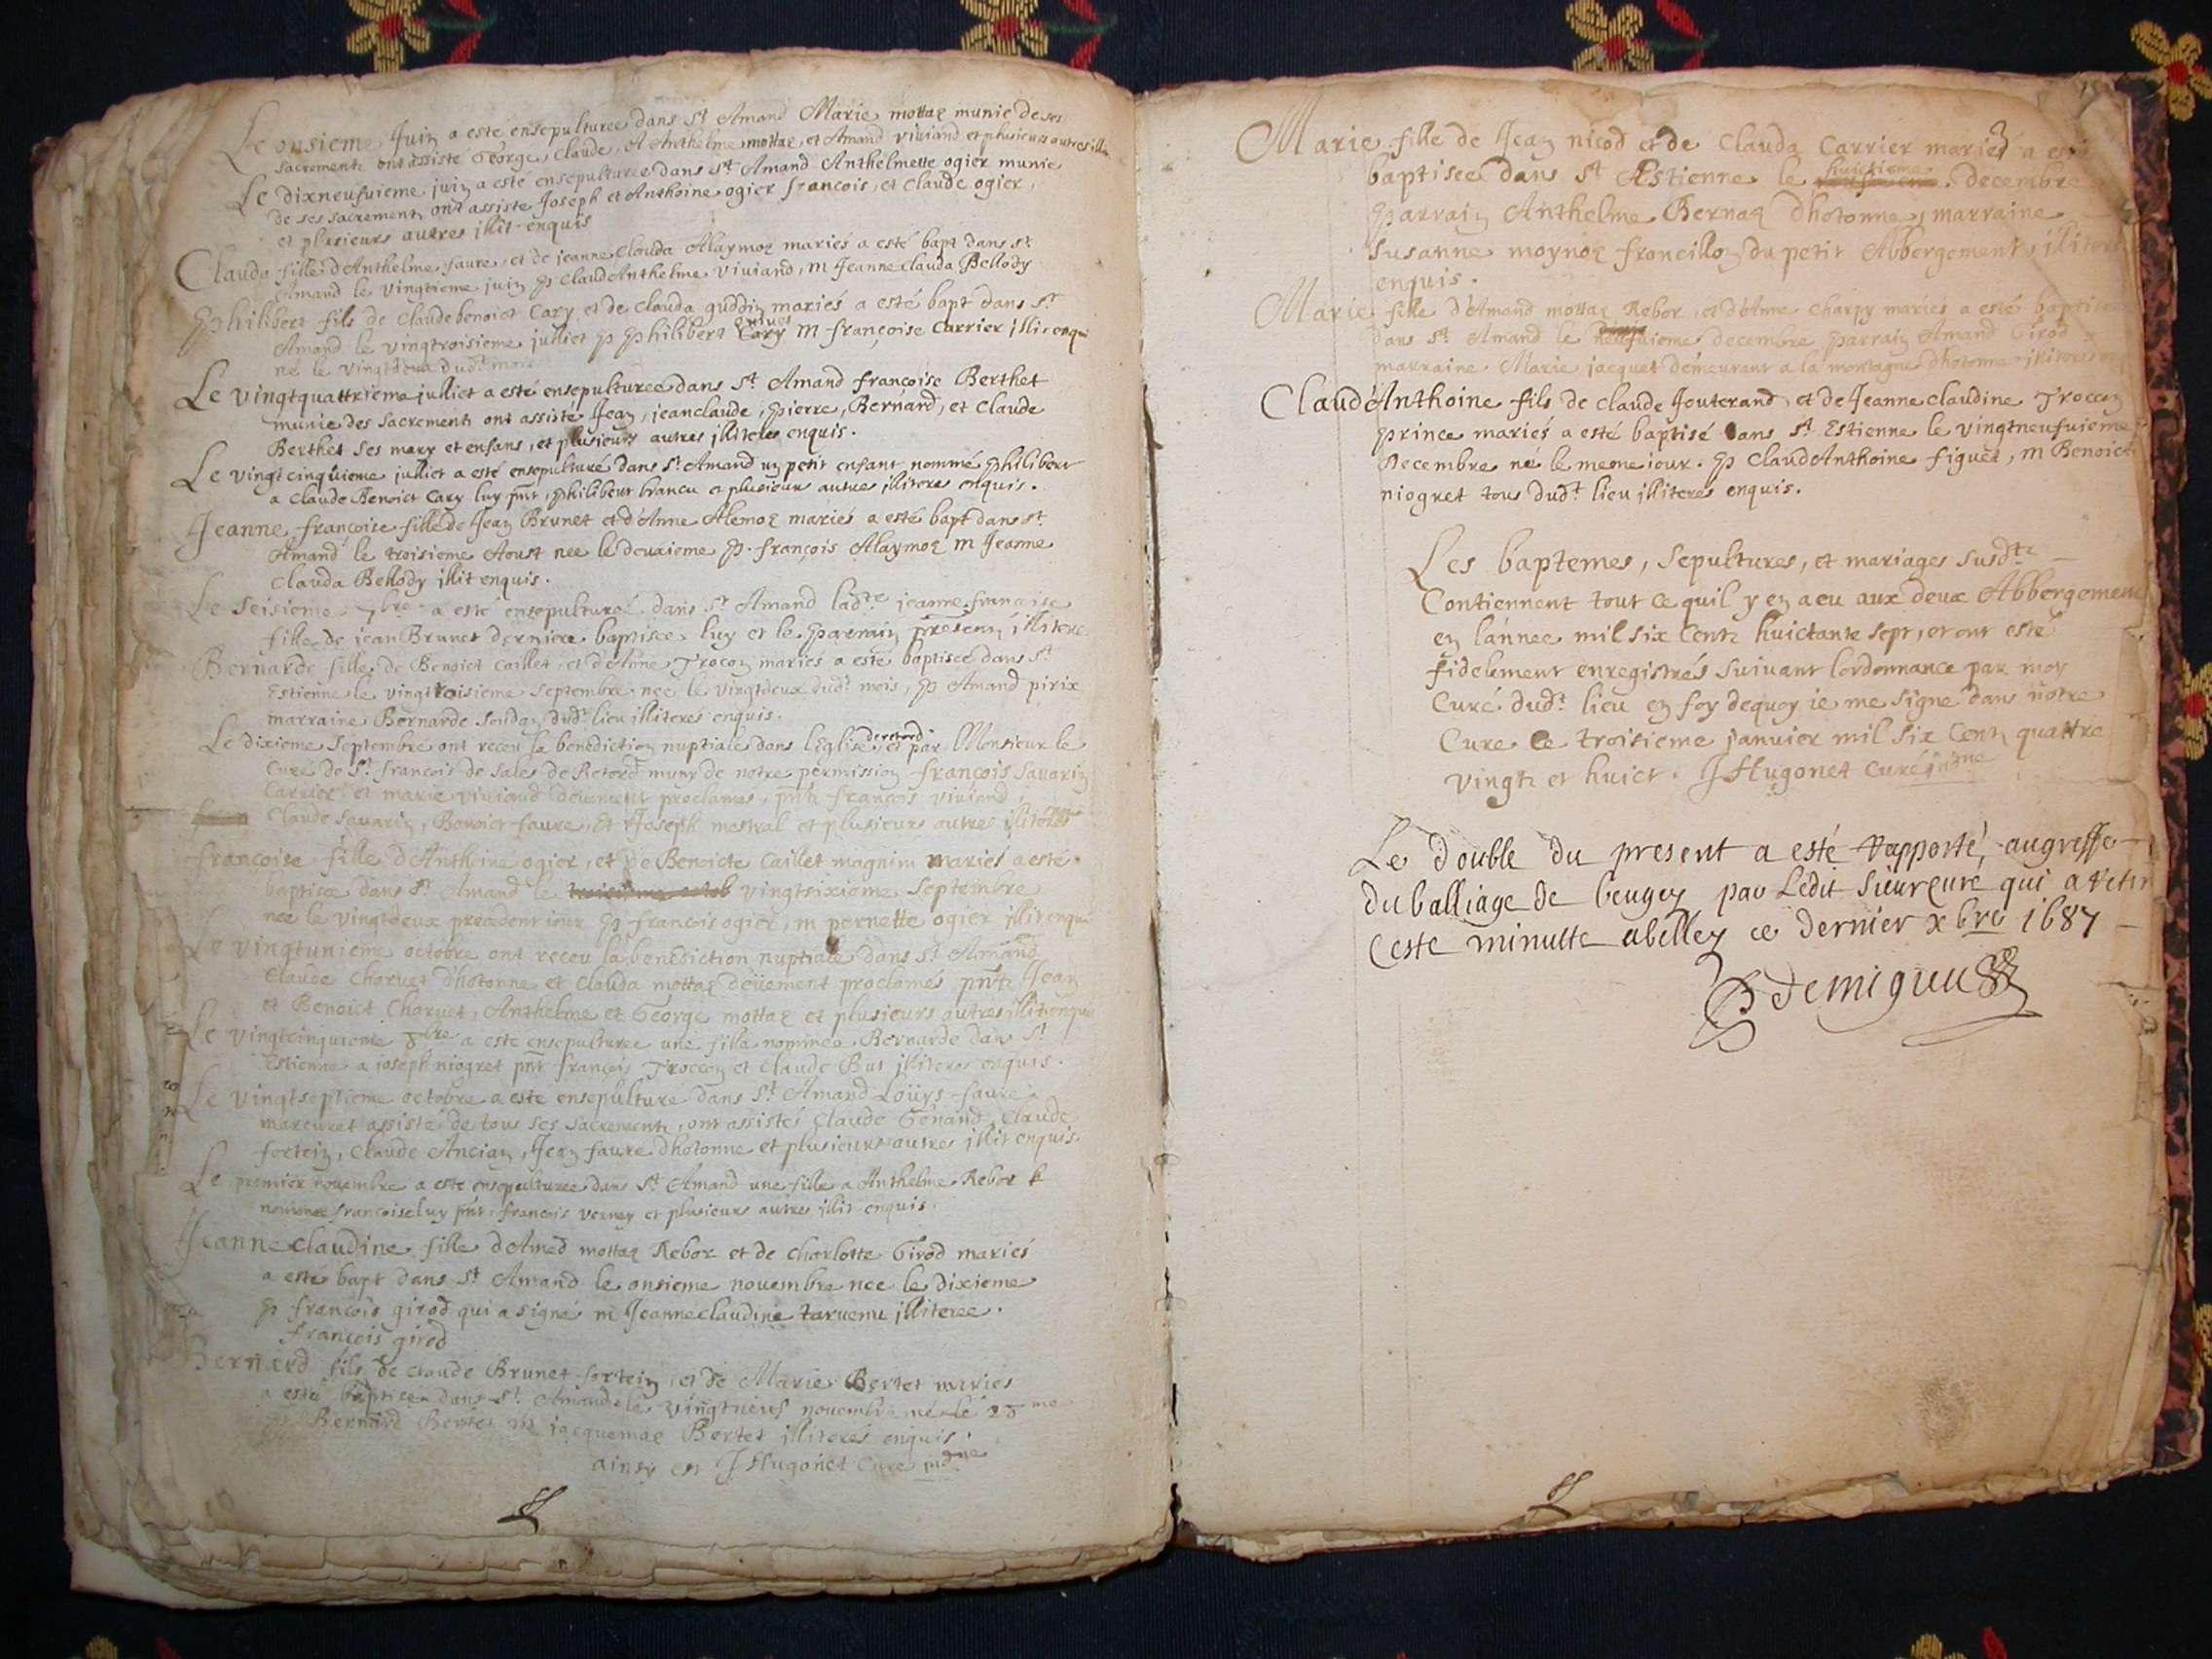 Le onsieme Juin a esté ensepulturee dans St Amand Marie mottaz munie de ses
sacrements ont assisté George, Claude, Anthelme mottaz, et Amand viviand et plusieurs autres illit
Le dixneufuieme juin a esté ensepulturee dans St Amand Anthelmette ogier munie
de ses sacrements ont assisté Joseph et Anthoine ogier francois, et Claude ogier,
et plusieurs autres illit enquis
Clauda fille d'Anthelme faure, et de jeanne Clauda Alaymoz mariés a esté bapt dans st
Amand le vingtieme juin P ClaudAnthelme Viviand, m Jeanne Clauda Bellody
Philibert fils de Claude benoict Cary et de Clauda guddin mariés a esté bapt dans st
Amand le vingtroisieme julliet p Philibert Cary m françoise Carrier illit enqui
né le vingtdeux dudt mois
Le vingtquattrieme julliet a esté ensepulturee dans St Amand françoise Berthet
munie des sacrements ont assisté Jean, jeanclaude, pierre, Bernard, et Claude
Berthet ses mary et enfans, et plusieurs autres illiteres enquis.
Le vingtcinquieme julliet a esté ensepulturé dans St Amand un petit enfant nommé Philibert
a Claude Benoict Cary luy pnt, philibert brancu et plusieurs autres illiteres enquis.
Jeanne françoise fille de Jean Brunet et d'Anne Alemoz mariés a esté bapt dans St
Amand le troisieme Aoust nee le deuxieme P. françois Alaymoz m Jeanne
Clauda Bellody illit enquis.
Le seisieme 7bre a esté ensepulturé dans St Amand ladte jeanne francoise
fille de jean Brunet derniere baptisee luy et le parrain presens illitere
Bernarde fille de Benoict Caillet et d'Anne Trocon mariés a esté baptisee dans St
Estienne le vingtroisieme septembre nee le vingtdeux dudt mois, P Amand pirix
marraine Bernarde soudan dudt lieu illiteres enquis.
Le dixieme Septembre ont receu la benediction nuptiale dans l'eglise, et par Monsieur le
Curé de St francois de Sales de Retord muny de notre permission françois Savarin
Carrier et marie viviand deuement proclamés, pnts francois viviand,
Claude Savarin, Benoict faure, Et Joseph mestral et plusieurs autres illiteres
francoise fille d'Anthoine ogier, et de Benoicte Caillet magnim mariés a esté
baptisee dans St Amand le troisieme octob vingtsixieme Septembre
nee le vingtdeux precedent jour P francois ogier, m pernette ogier illit enqui
Le vingtunieme octobre ont receu la benediction nuptiale dans St Amand
Claude Charvet d'hotonne et Clauda mottaz deüement proclamés pnts Jean
et Benoict Charvet, Anthelme et George mottaz et plusieurs autres illit enquis
Le vingtcinquieme 8bre a este ensepulturee une fille nommée Bernarde dans St
Estienne a joseph niogret pnt françois Troccon et Claude But illiteres enquis.
Le vingtseptieme octobre a este ensepulture dans St Amand Loüys faure
marcuret assisté de tous ses sacrements, ont assistés Claude Génand, Claude
fortein, Claude Ancian, Jean faure d'hotonne et plusieurs autres illit enquis.
Le premier novembre a este ensepulturee dans St Amand une fille a Anthelme Rebor
nommée francoise luy pnt, françois vernay et plusieurs autres illit enquis.
Jeanneclaudine fille d'Amed mottaz Rebor et de Charlotte Girod mariés
a esté bapt dans St Amand le onsieme nouembre nee le dixieme
P françois girod qui a signé m Jeanneclaudine tarvenu illiteree.
françois girod
Bernard fils de Claude Brunet fortein, et de Marie Bertet mariés
a esté baptisé dans St Amand le vingtneuf novembre né le 28me
P Bernard Bertet m jacquemaz Bertet illiterés enquis.
ainsy est J Hugonet Cure indgne
Marie fille de Jean nicod et de Clauda Carrier mariés a esté
baptisee dans St Estienne le huictieme decembre
Parrain Anthelme Bernaz d'hotonne, marraine
Susanne moynoz francillon du petit Abbergement illitere
enquis.
Marie fille d'Amand mottaz Rebor, et d'Anne Charpy mariés a esté baptisee
dans St Amand le decembre parrain Amand Girod
marraine Marie jacquet demeurant a la montagne d'hotonne illiteres
Claud'Anthoine fils de Claude Jouterand et de Jeanne claudine Troccon
prince mariés a esté baptisé dans St Estienne le vingtneufuieme
Decembre né le meme iour. P Claud'Anthoine figuet, m Benoicte
niogret tous dudt lieu illiteres enquis.
Les baptemes, Sepultures, et mariages susdts
Contiennent tout ce quil y en a eu aux deux Abbergements
en lánnee mil six Cents huictante sept, et ont esté
fidelement enregistrés suivant lordonnance par moy
Curé dudt lieu en foy dequoy ie me signé dans nôtre
Cure Ce troisieme januier mil six Cents quattre
vingts et huict. J Hugonet Curé indne
Le double du present a esté rapporté, au greffe
du balliage de beugey par Ledit Sieur Cure qui a retir
Ceste minutte a belley ce dernier xbre 1687
Demigieu